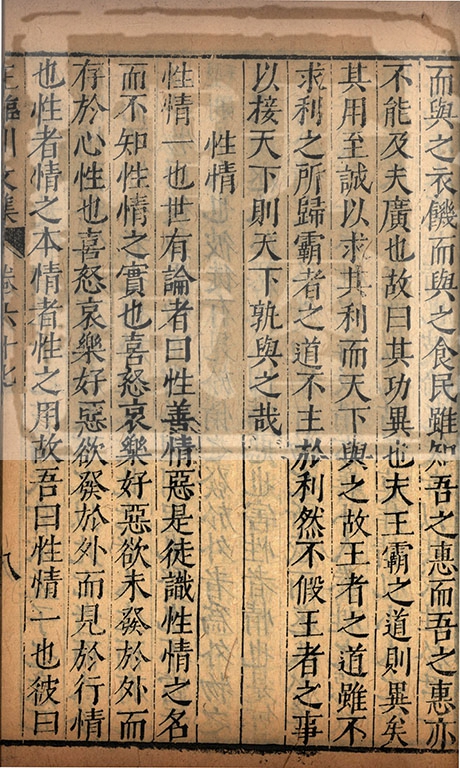 而與之衣饑而與之食民雖知吾之惠而吾之惠亦
不能及夫廣也故曰其功異也夫王霸之道則異矣
其用至誠以求其利而天下與之故王者之道雖不
求利之所歸霸者之道不主於利然不假王者之事
以接天下則天下孰與之哉
性情
性情一也世有論者曰性善情惡是徒識性情之名
而不知性情之實也喜怒哀樂好惡欲未發於外而
存於心性也喜怒哀樂好惡欲發於外而見於行情
也性者情之本情者性之用故吾曰性情一也彼曰
王臨川文集 卷六十七 八